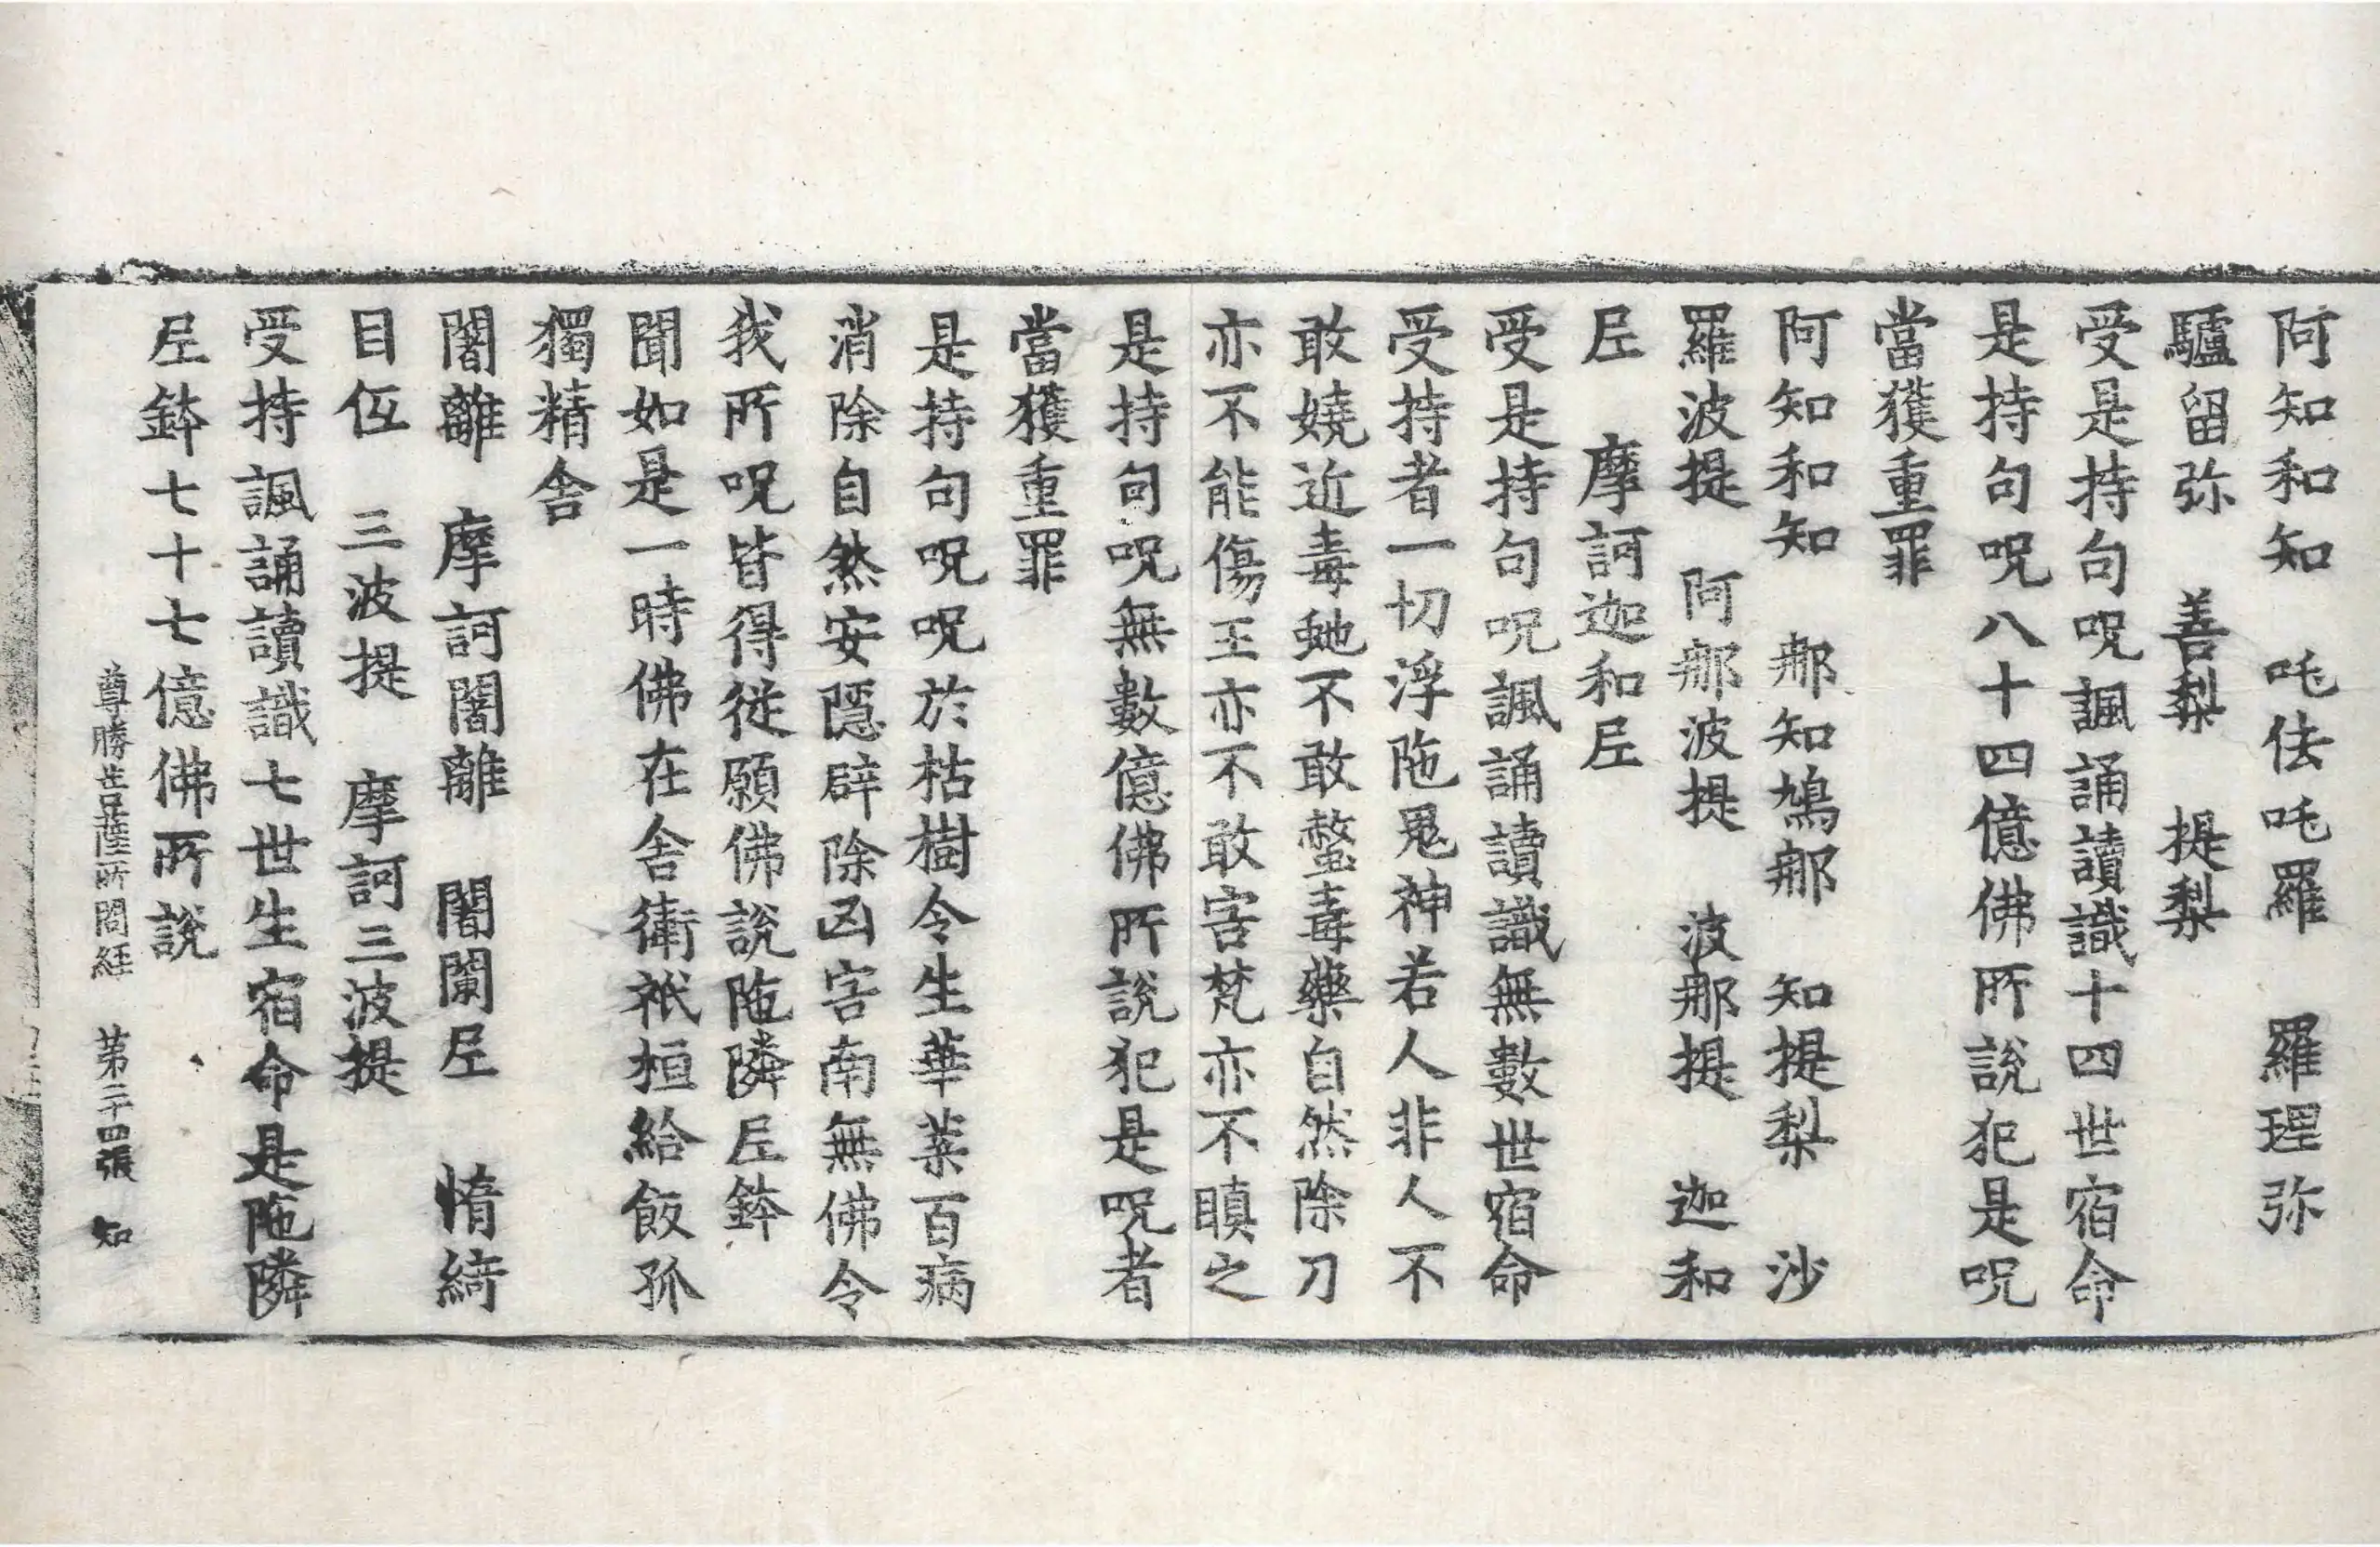 阿知和知　吒佉吒羅　羅理弥
驢留弥　善梨　提梨
受是持句呪諷誦讀識十四世宿命
是持句呪八十四億佛所說犯是呪
當獲重罪
阿知和知　那知鳩那　知提梨　沙
羅波提　阿那波提　波那提　迦和
𡰱　摩訶迦和𡰱
受是持句呪諷誦讀識無數世宿命
受持者一切浮陁鬼神若人非人不
敢嬈近毒虵不敢螫毒毒藥自然除刀
亦不能傷王亦不敢害梵亦不瞋之
是持句呪無數億佛所說犯是呪者
當獲重罪
是持句呪呪於枯樹令生華葉百病
消除自然安隱辟除凶害南無佛令
我所呪皆得從願佛說陁隣𡰱鉢
聞如是一時佛在舍衛祇桓給飯孤
獨精舍
闍離　摩訶闍離　闍闌𡰱　惰綺
目伍　三波提　摩訶三波提
受持諷誦讀識七世生宿命是陁隣
𡰱鉢七十七億佛所說
尊勝菩薩所問経　第二十四張　知